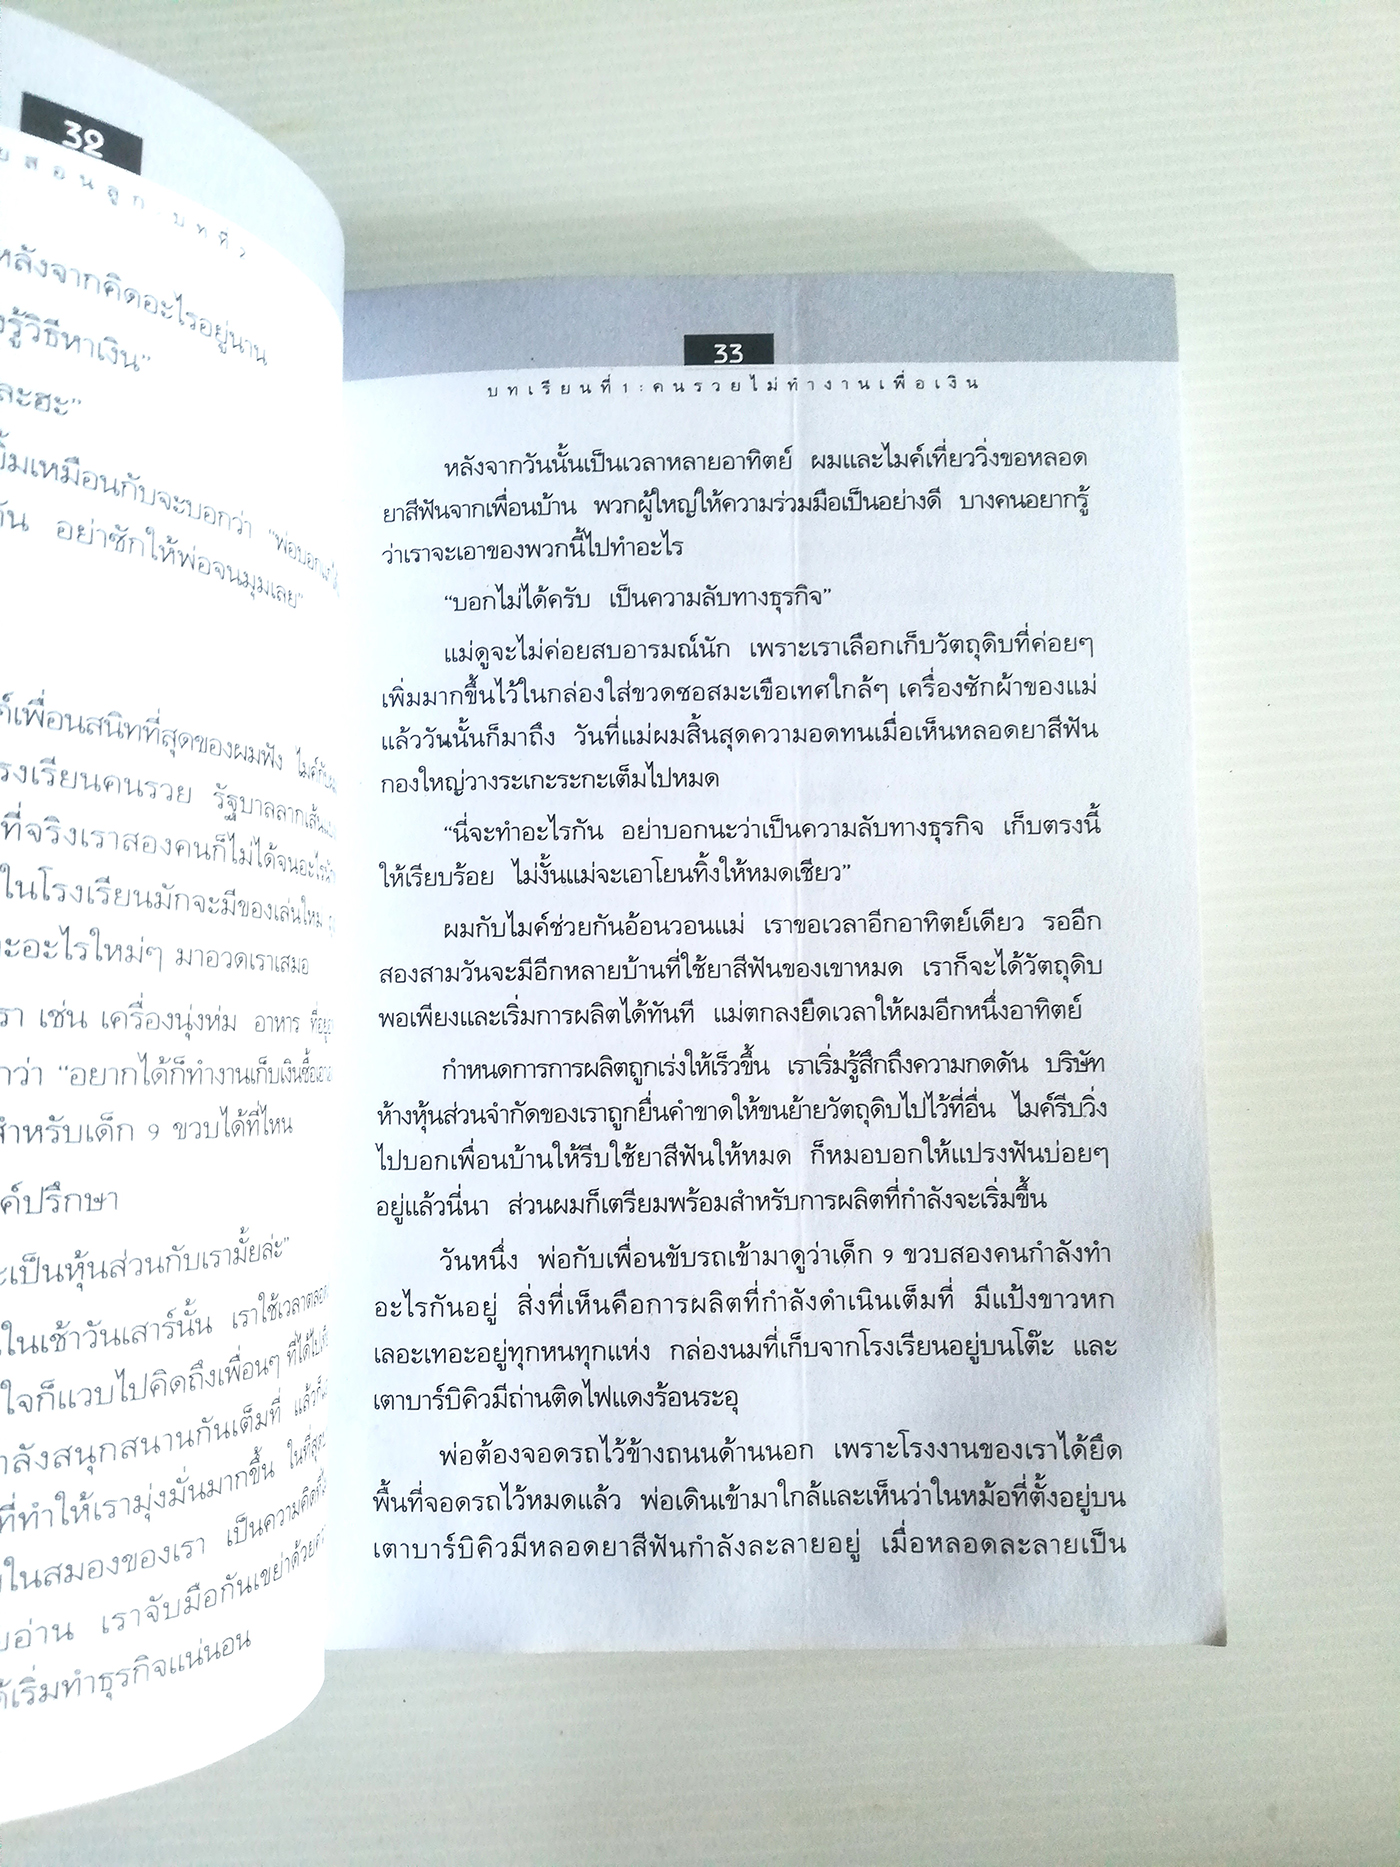 32
สอนลูก
หลังจากคิดอะไรอยู่นาน
รู้วิธีหาเงิน”
ละฮะ”
ยิ้มเหมือนกับจะบอกว่า “พ่อบอกแก
อย่าซักให้พ่อจนมุมเลย”
เพื่อนสนิทที่สุดของผมฟัง
โรงเรียนคนรวย รัฐบาลลากเส้น
ที่จริงเราสองคนก็ไม่ได้จนอะไร
ในโรงเรียนมักจะมีของเล่นใหม่
อะไรใหม่ๆ มาอวดเราเสมอ
เช่น เครื่องนุ่งห่ม อาหาร
กว่า “อยากได้ก็ทำงานเก็บเงินซื้อ
สำหรับเด็ก 9 ขวบได้ที่ไหน
ค์ปรึกษา
จะเป็นหุ้นส่วนกับเรามั้ยล่ะ”
ในเช้าวันเสาร์นั้น เราใช้เวลาตลอด
ใจก็แวบไปคิดถึงเพื่อนๆ
กำลังสนุกสนานกันเต็มที่
ที่ทำให้เรามุ่งมั่นมากขึ้น
ในสมองของเรา
เราจับมือกันเขย่าด้วย
เริ่มทำธุรกิจแน่นอน
33
บทเรียนที่ 1 : คนรวยไม่ทำงานเพื่อเงิน
หลังจากวันนั้นเป็นเวลาหลายอาทิตย์ ผมและไมค์เที่ยววิ่งขอหลอด
ยาสีฟันจากเพื่อนบ้าน พวกผู้ใหญ่ให้ความร่วมมือเป็นอย่างดี บางคนอยากรู้
ว่าเราจะเอาของพวกนี้ไปทำอะไร
“บอกไม่ได้ครับ เป็นความลับทางธุรกิจ”
แม่ดูจะไม่ค่อยสบอารมณ์นัก เพราะเราเลือกเก็บวัตถุดิบที่ค่อยๆ
เพิ่มมากขึ้นไว้ในกล่องใส่ขวดซอสมะเขือเทศใกล้ๆ เครื่องซักผ้าของแม่
แล้ววันนั้นก็มาถึง วันที่แม่ผมสิ้นสุดความอดทนเมื่อเห็นหลอดยาสีฟัน
กองใหญ่วางระเกะระกะเต็มไปหมด
“นี่จะทำอะไรกัน อย่าบอกนะว่าเป็นความลับทางธุรกิจ เก็บตรงนี้
ให้เรียบร้อย ไม่งั้นแม่จะเอาโยนทิ้งให้หมดเชียว”
ผมกับไมค์ช่วยกันอ้อนวอนแม่ เราขอเวลาอีกอาทิตย์เดียว รออีก
สองสามวันจะมีอีกหลายบ้านที่ใช้ยาสีฟันของเขาหมด เราก็จะได้วัตถุดิบ
พอเพียงและเริ่มการผลิตได้ทันที แม่ตกลงยืดเวลาให้ผมอีกหนึ่งอาทิตย์
กำหนดการการผลิตถูกเร่งให้เร็วขึ้น เราเริ่มรู้สึกถึงความกดดัน บริษัท
ห้างหุ้นส่วนจำกัดของเราถูกยื่นคำขาดให้ขนย้ายวัตถุดิบไปไว้ที่อื่น ไมค์รีบวิ่ง
ไปบอกเพื่อนบ้านให้รีบใช้ยาสีฟันให้หมด ก็หมอบอกให้แปรงฟันบ่อยๆ
อยู่แล้วนี่นา ส่วนผมก็เตรียมพร้อมสำหรับการผลิตที่กำลังจะเริ่มขึ้น
วันหนึ่ง พ่อกับเพื่อนขับรถเข้ามาดูว่าเด็ก 9 ขวบสองคนกำลังทำ
อะไรกันอยู่ สิ่งที่เห็นคือการผลิตที่กำลังดำเนินเต็มที่ มีแป้งขาวหก
เลอะเทอะอยู่ทุกหนทุกแห่ง กล่องนมที่เก็บจากโรงเรียนอยู่บนโต๊ะ และ
เตาบาร์บิคิวมีถ่านติดไฟแดงร้อนระอุ
พ่อต้องจอดรถไว้ข้างถนนด้านนอก เพราะโรงงานของเราได้ยึด
พื้นที่จอดรถไว้หมดแล้ว พ่อเดินเข้ามาใกล้และเห็นว่าในหม้อที่ตั้งอยู่บน
เตาบาร์บิคิวมีหลอดยาสีฟันกำลังละลายอยู่ เมื่อหลอดละลายเป็น